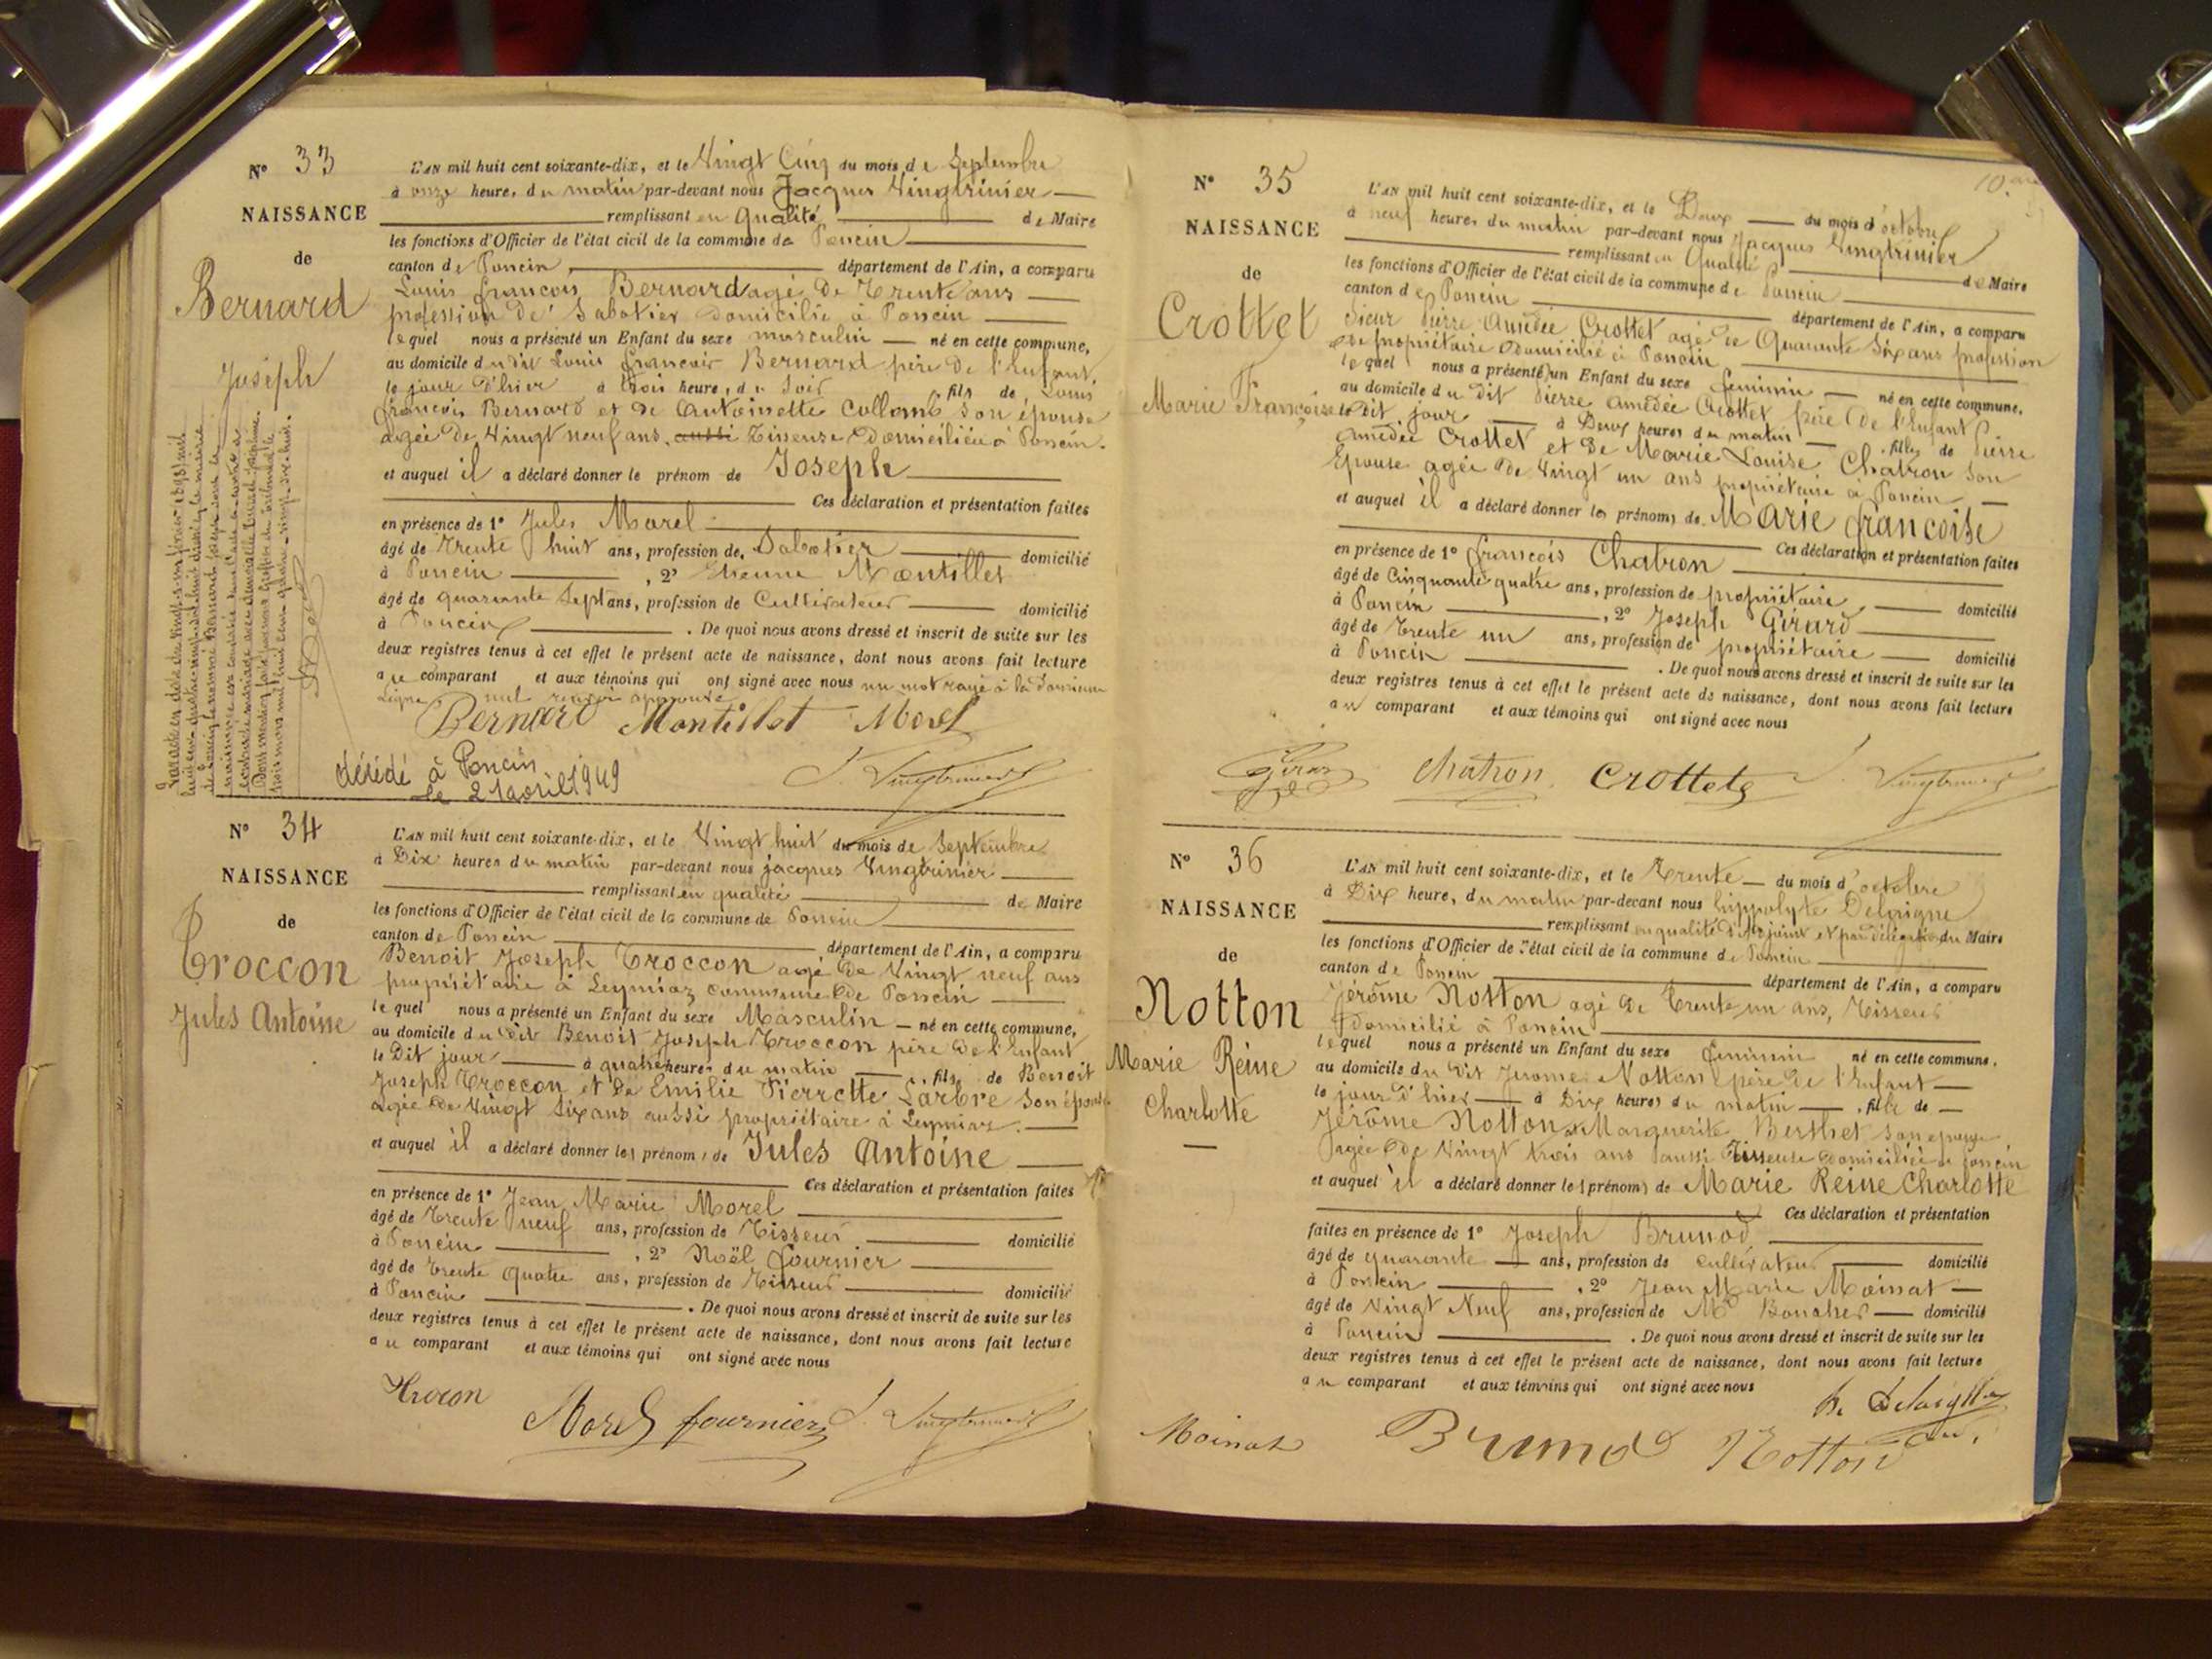 N° 33
NAISSANCE
de
Bernard
Joseph
L'AN mil huit cent soixante-dix, et le Vingt Cinq du mois de Septembre
à onze heures du matin par-devant nous Jacques Vingtrinier
remplissant en qualité de Maire
les fonctions d'Officier de l'état civil de la commune de Poncin
canton de Poncin, département de l'Ain, a comparu
Louis françois Bernard agé de Trente ans
profession de Sabotier domicilié à Poncin
lequel nous a présenté un Enfant du sexe masculin né en cette commune,
au domicile du dit Louis françois Bernard père de l'Enfant,
le jour d'hier à trois heures du Soir, fils de Louis
françois Bernard et de Antoinette Collomb son épouse
agée de Vingt neuf ans, aussi Tisseuse domiciliée à Poncin.
et auquel il a déclaré donner le prénom de Joseph
Ces déclaration et présentation faites
en présence de 1° Jules Morel
âgé de Trente huit ans, profession de Sabotier domicilié
à Poncin, 2° Etienne Montillet
âgé de quarante Sept ans, profession de Cultivateur domicilié
à Poncin. De quoi nous avons dressé et inscrit de suite sur les
deux registres tenus à cet effet le présent acte de naissance, dont nous avons fait lecture
au comparant et aux témoins qui ont signé avec nous un mot rayé à la
Ligne nul renvoi approuvé
Bernard Montillet Morel
J. Vingtrinier
décédé à Poncin
le 21 avril 1949
N° 34
NAISSANCE
de
Troccon
Jules Antoine
L'AN mil huit cent soixante-dix, et le Vingt huit du mois de Septembre
à Dix heures du matin par-devant nous jacques Vingtrinier
remplissant en qualité de Maire
les fonctions d'Officier de l'état civil de la commune de Poncin
canton de Poncin département de l'Ain, a comparu
Benoit Joseph Troccon agé de Vingt neuf ans
propriétaire à Leymiaz commune de Poncin
lequel nous a présenté un Enfant du sexe Masculin né en cette commune,
au domicile du dit Benoit Joseph Troccon père de l'Enfant
le Dit jour à quatre heures du matin, fils de Benoit
Joseph Troccon et de Emilie Pierrette Larbre Son épouse
agée de Vingt Six ans aussi propriétaire à Leymiaz.
et auquel il a déclaré donner les prénoms de Jules Antoine
Ces déclaration et présentation faites
en présence de 1° Jean Marie Morel
âgé de Trente neuf ans, profession de Tisseur domicilié
à Poncin, 2° Noël fournier
âgé de trente quatre ans, profession de Tisseur domicilié
à Poncin. De quoi nous avons dressé et inscrit de suite sur les
deux registres tenus à cet effet le présent acte de naissance, dont nous avons fait lecture
au comparant et aux témoins qui ont signé avec nous
Morel fournier J. Vingtrinier
N° 35
NAISSANCE
de
Crottet
Marie Françoise
L'AN mil huit cent soixante-dix, et le Deux du mois d'octobre
à neuf heures du matin par-devant nous Jacques Vingtrinier
remplissant en Qualité de Maire
les fonctions d'Officier de l'état civil de la commune de Poncin
canton de Poncin département de l'Ain, a comparu
Sieur Pierre Amédée Crottet agé de Quarante Six ans profession
de propriétaire domicilié à Poncin
lequel nous a présenté un Enfant du sexe féminin né en cette commune,
au domicile du dit Pierre Amédée Crottet père de l'Enfant
le dit jour à Deux heures du matin, fille de Pierre
Amédée Crottet et de Marie Louise Chatron son
Epouse agée de Vingt un ans propriétaire à Poncin
et auquel il a déclaré donner les prénoms de Marie françoise
Ces déclaration et présentation faites
en présence de 1° françois Chatron
âgé de Cinquante quatre ans, profession de propriétaire, domicilié
à Poncin, 2° Joseph Girard
âgé de Trente un ans, profession de propriétaire domicilié
à Poncin. De quoi nous avons dressé et inscrit de suite sur les
deux registres tenus à cet effet le présent acte de naissance, dont nous avons fait lecture
au comparant et aux témoins qui ont signé avec nous
Chatron Crottet J. Vingtrinier
N° 36
NAISSANCE
de
Notton
Marie Reine
Charlotte
L'AN mil huit cent soixante-dix, et le Trente du mois d'octobre
à Dix heures du matin par-devant nous hippolyte Delaigne
remplissant en qualité d'Adjoint et par délégation du Maire
les fonctions d'Officier de l'état civil de la commune de Poncin
canton de Poncin département de l'Ain, a comparu
Jérôme Notton agé de Trente un ans, Tisseur
domicilié à Poncin
lequel nous a présenté un Enfant du sexe féminin né en cette commune,
au domicile du Dit Jerome Notton père de l'Enfant
le jour d'hier à Dix heures du matin, fille de
Jérôme Notton & Marguerite Berthet son epouse,
agée de Vingt trois ans aussi Tisseuse domiciliée à Poncin
et auquel il a déclaré donner les prénoms de Marie Reine Charlotte
Ces déclaration et présentation
faites en présence de 1° Joseph Brunod
âgé de quarante ans, profession de cultivateur domicilié
à Poncin, 2° Jean Marie Moinat
âgé de Vingt Neuf ans, profession de Md Boucher domicilié
à Poncin. De quoi nous avons dressé et inscrit de suite sur les
deux registres tenus à cet effet le présent acte de naissance, dont nous avons fait lecture
au comparant et aux témoins qui ont signé avec nous
Moinat Brunod Notton